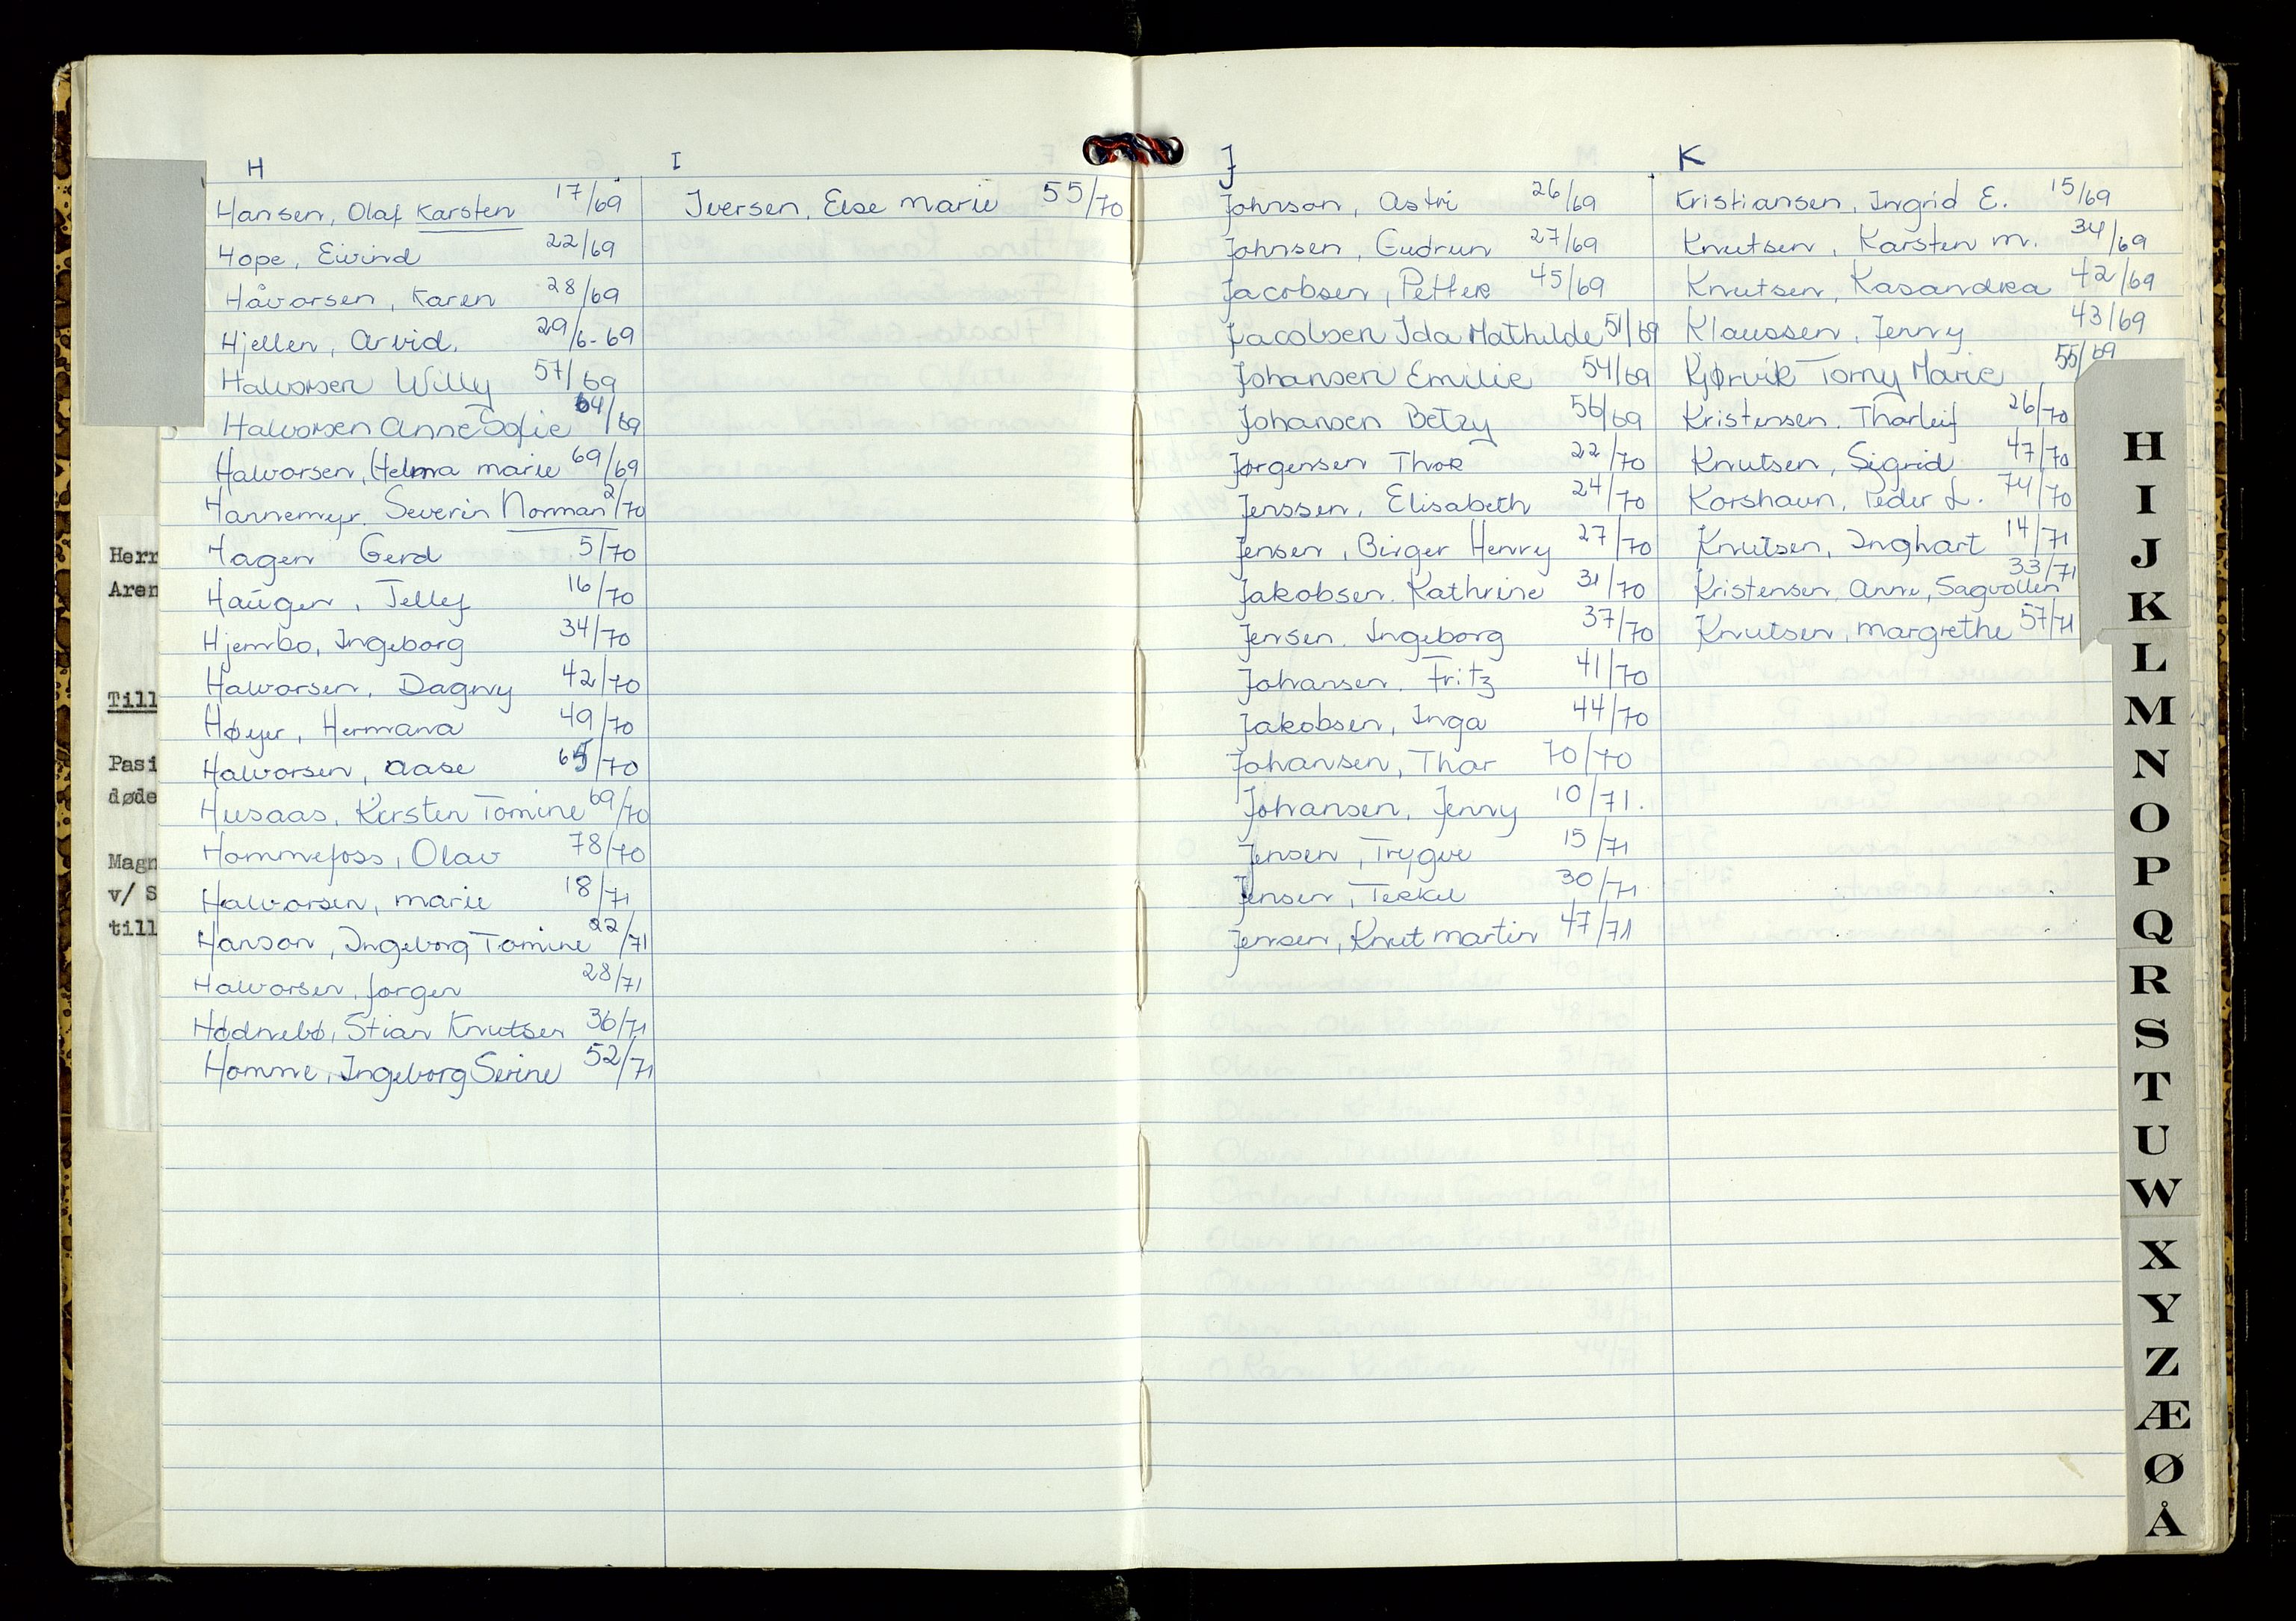 H
Hansen, Olaf Karsten 17/69
Hope, Eivind 22/69
Håvorsen, Karen 28/69
Hjellen, Arvid. 29/6-69
Halvorsen Willy 57/69
Halvorsen Anne Sofie 64/69
Halvorsen, Helma marie 69/69
Hannemyr. Severin Norman 2/70
Hagen Gerd 5/70
Haugen, Tellef 16/70
Hjembo, Ingeborg 34/70
Halvorsen, Dagny 42/70
Høyer, Hermana 49/70
Halvorsen, Aase 65/70
Husaas, Kirsten Tomine 69/70
Hommefoss, Olav 78/70
Halvorsen, marie 18/71
Hanson, Ingeborg Tomine 22/71
Halvorsen, Jørgen 28/71
Hødnebø, Stian Knutsen 36/71
Homme, Ingeborg Serine 52/71
I
Iversen, Else marie 55/70
J
Johnson, Astri 26/69
Johnsen, Gudrun 27/69
Jacobsen, Petter 45/69
Jacobsen Ida Mathilde 51/69
Johansen Emilie 54/69
Johansen Betzy 56/69
Jørgensen Thor 22/70
Jenssen, Elisabeth 24/70
Jensen, Birger Henry 27/70
Jakobsen. Kathrine 31/70
Jensen. Ingeborg 37/70
Johansen. Fritz 41/70
Jakobsen, Inga 44/70
Johansen, Thor 70/70
Johansen, Jenny 10/71.
Jensen, Trygve 15/71
Jensen, Terkel 30/71
Jensen, Knut martin 47/71
K
Kristiansen, Ingrid E. 15/69
Knutsen, Karsten M. 34/69
Knutsen, Kasandra 42/69
Klaussen, Jenny 43/69
Kjørvik Torny Marie 55/69
Kristensen. Thorleif 26/70
Knutsen, Sigrid 47/70
Korshavn, Peder L. 74/70
Knutsen, Inghart 14/71
Kristensen, Anne, Sagvollen 33/71
Knutsen, margrethe 57/71
Herr
Aren
Till
Pasi
døde
Magn
v/ S
till
H
I
J
K
L
M
N
O
P
Q
R
S
T
U
W
X
Y
Z
Æ
Ø
Å